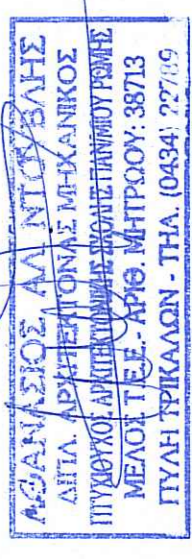 ΑΘΑΝΑΣΙΟΣ ΑΛ. ΝΤΟΥΒΛΗΣ
ΔΙΠΛ. ΑΡΧΙΤΕΚΤΟΝΑΣ ΜΗΧΑΝΙΚΟΣ
ΠΤΥΧΙΟΥΧΟΣ ΑΡΧΙΤΕΚΤΟΝΙΚΗΣ ΣΧΟΛΗΣ ΠΑΝ/ΜΙΟΥ ΡΩΜΗΣ
ΜΕΛΟΣ Τ.Ε.Ε. - ΑΡΙΘ. ΜΗΤΡΩΟΥ: 38713
ΠΥΛΗ ΤΡΙΚΑΛΩΝ - ΤΗΛ. (0434) 22789